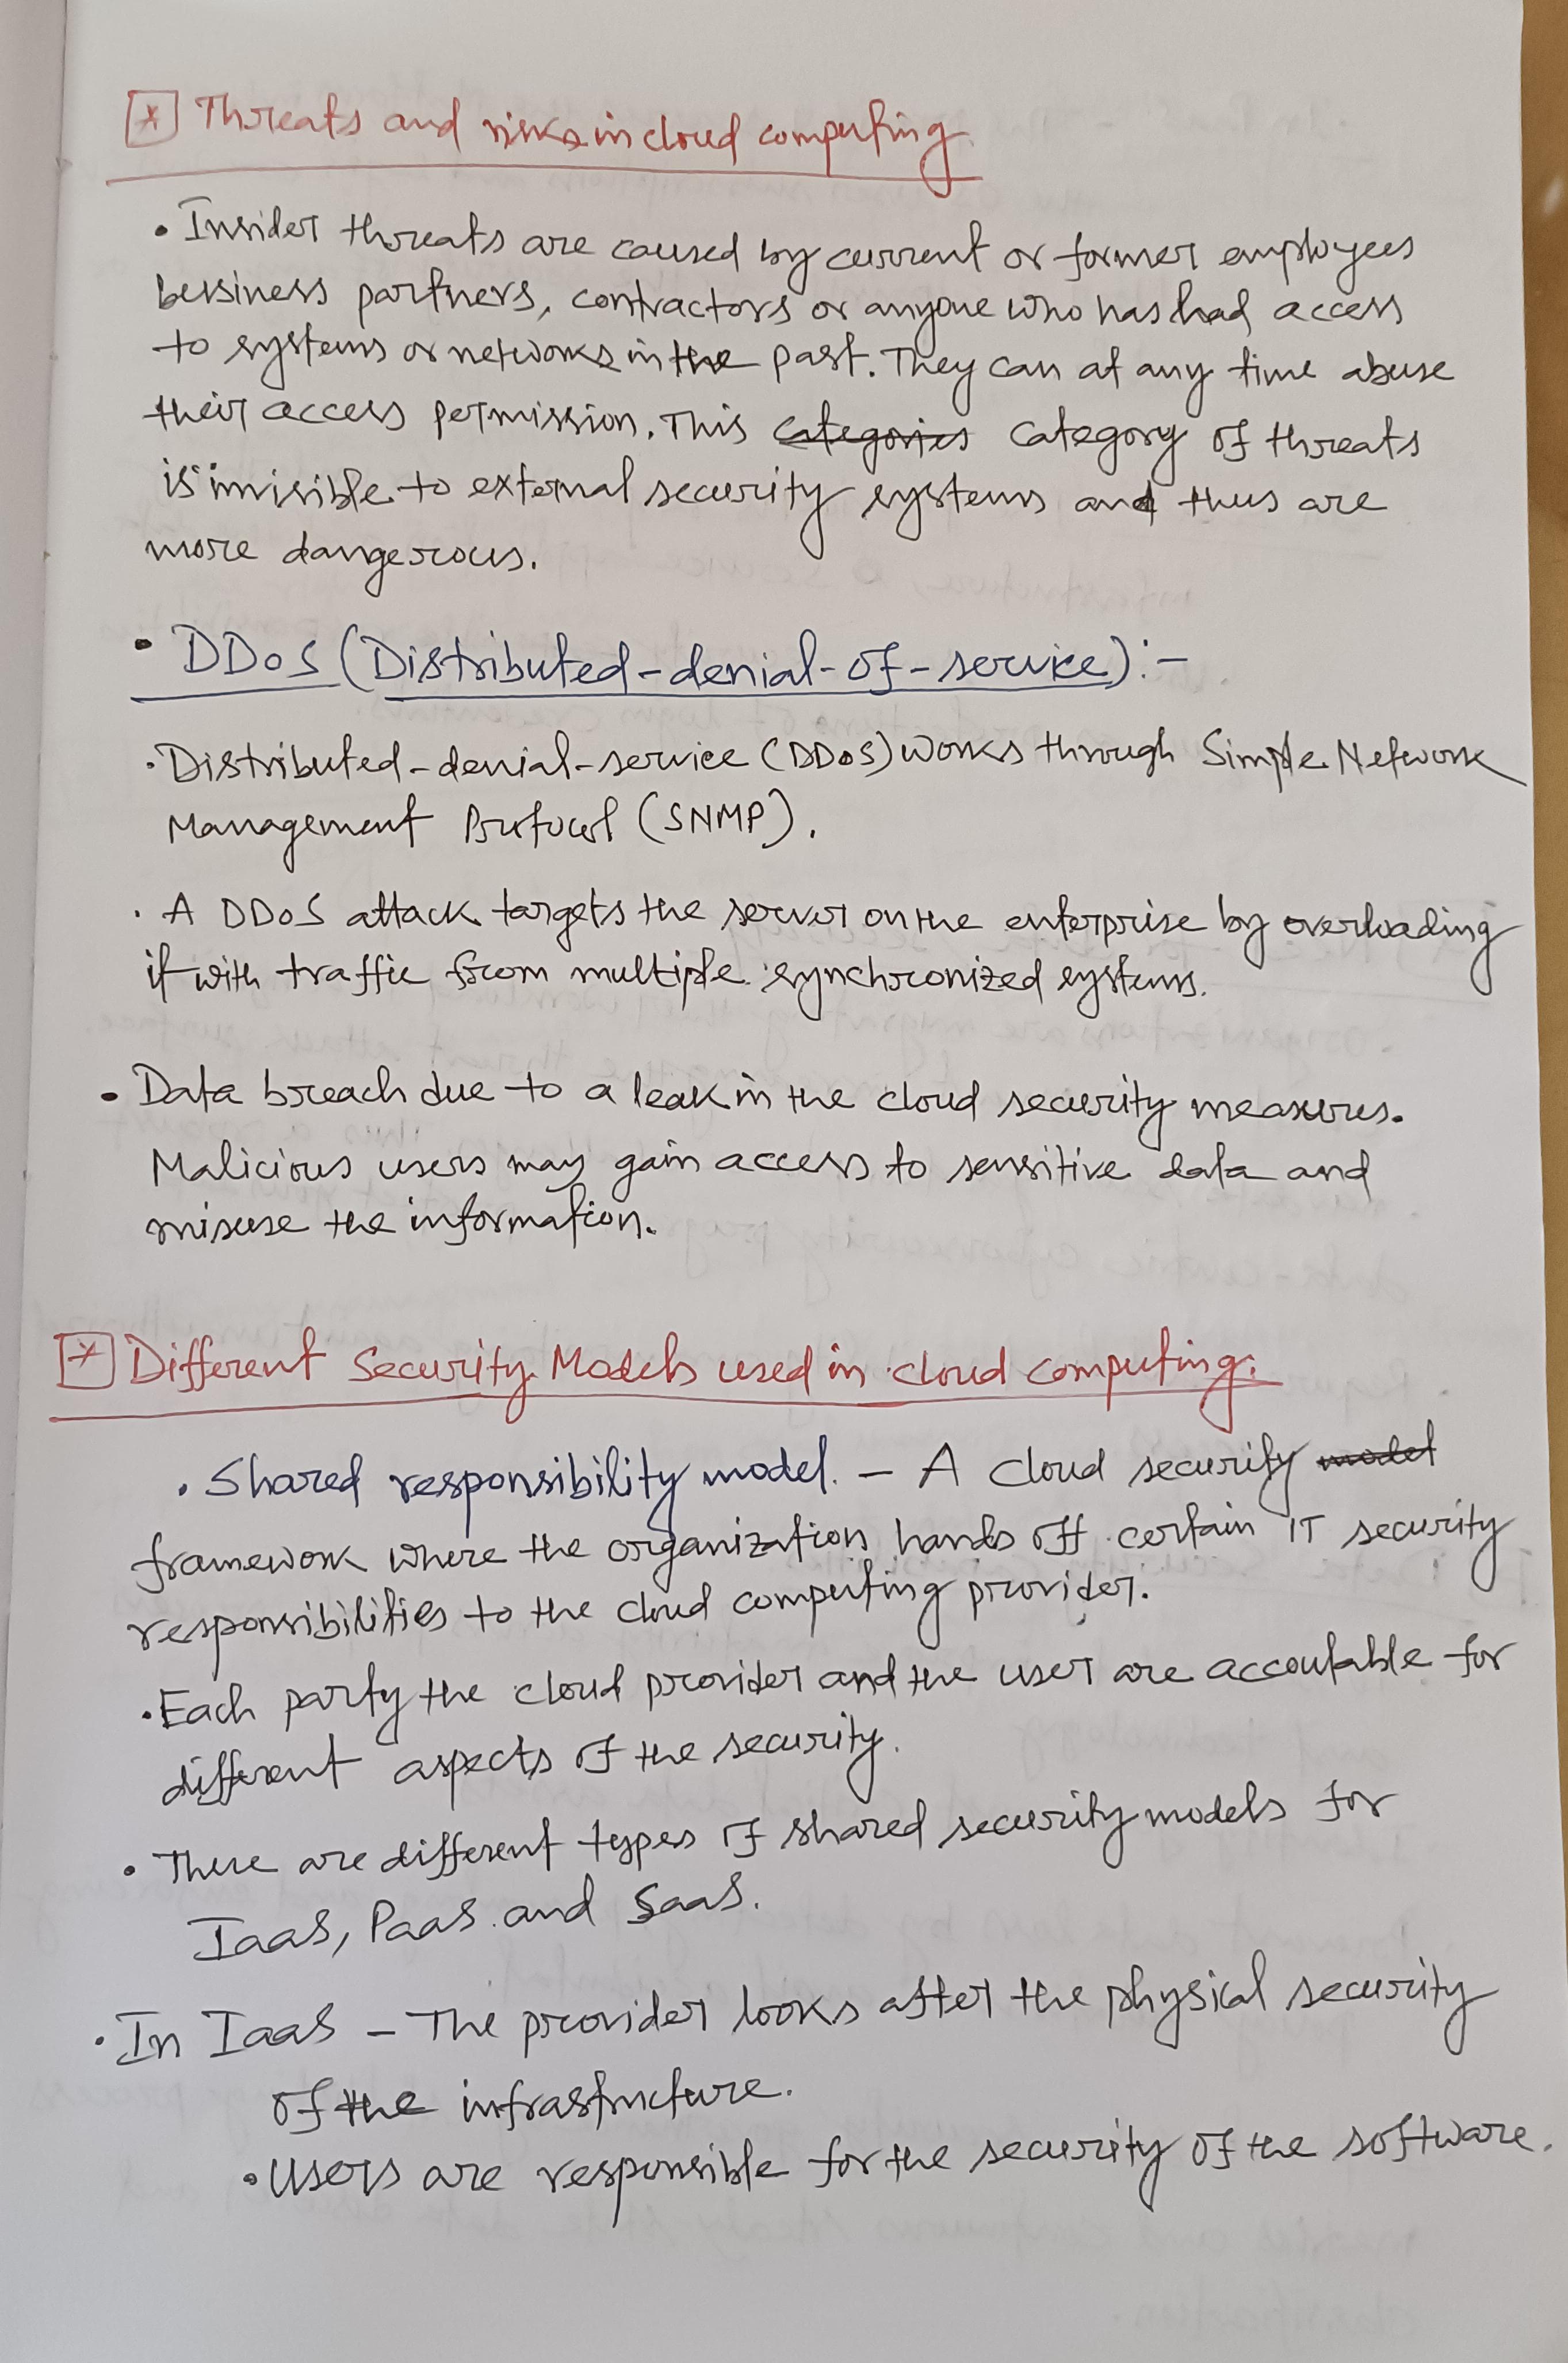 * Threats and risks in cloud computing.
• Insider threats are caused by current or former employees
business partners, contractors or anyone who has had access
to systems or networks in the past. They can at any time abuse
their access permission. This categories category of threats
is invisible to external security systems and thus are
more dangerous.
• DDoS (Distributed-denial-of-service):-
• Distributed-denial-service (DDoS) works through Simple Network
Management Protocol (SNMP).
• A DDoS attack targets the server on the enterprise by overloading
it with traffic from multiple synchronized systems.
• Data breach due to a leak in the cloud security measures.
Malicious users may gain access to sensitive data and
misuse the information.
* Different Security Models used in cloud computing:
• Shared responsibility model. – A cloud security model
framework where the organization hands off certain IT security
responsibilities to the cloud computing provider.
• Each party the cloud provider and the user are accoutable for
different aspects of the security.
• There are different types of shared security models for
IaaS, PaaS and SaaS.
• In IaaS – The provider looks after the physical security
of the infrastructure.
• Users are responsible for the security of the software.